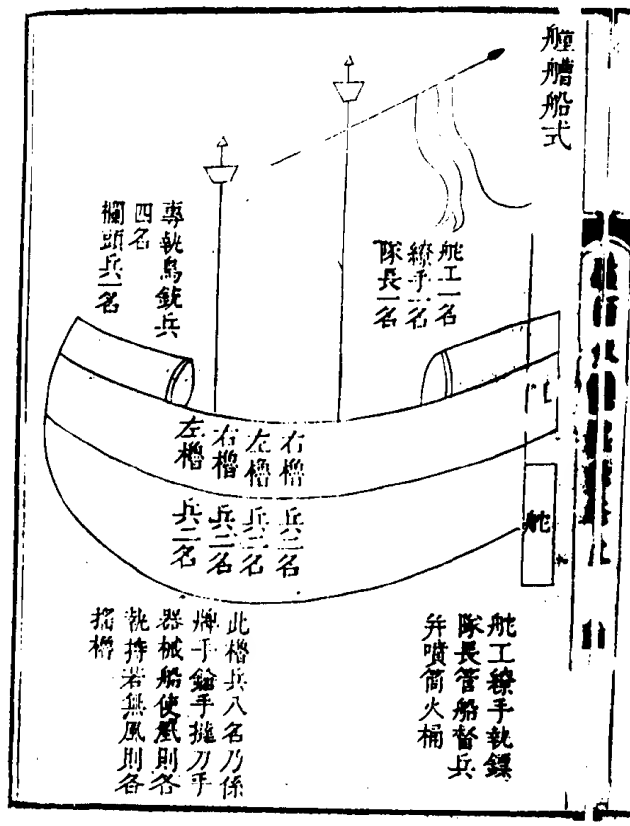 艟艚船式
舵工一名
繚手一名
隊長一名
專執鳥銃兵
四名
欄頭兵一名
右櫓 兵二名
左櫓 兵二名
右櫓 兵二名
左櫓 兵二名
舵
舵工繚手執鏢
隊長管船督兵
并噴筒火桶
此櫓兵八名乃係
牌手鎗手
刀手
器械船使風則各
執持若無風則各
搖櫓